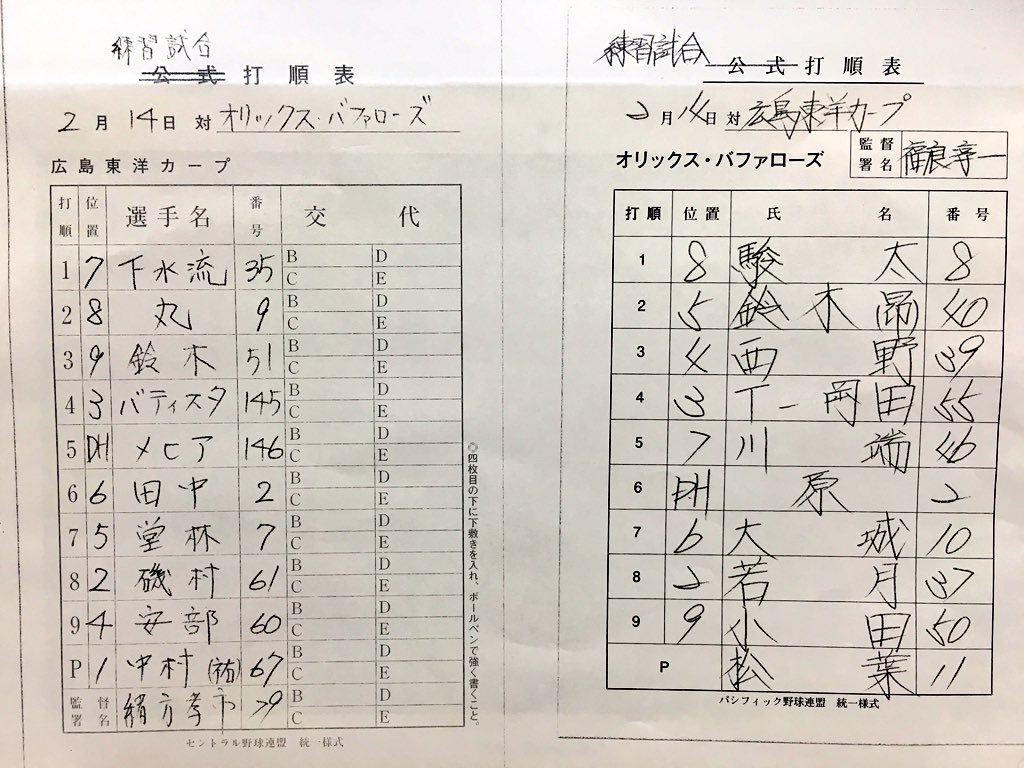 練習試合
公式打順表
2月14日 対 オリックス・バファローズ
広島東洋カープ
打順 位置 選手名 番号 交代
1 7 下水流 35 B D C E
2 8 丸 9 B D C E
3 9 鈴木 51 B D C E
4 3 バティスタ 145 B D C E
5 DH メヒア 146 B D C E
6 6 田中 2 B D C E
7 5 堂林 7 B D C E
8 2 磯村 61 B D C E
9 4 安部 60 B D C E
P 1 中村(祐) 67 B D C E
監督署名 緒方孝市 79 B D C E
セントラル野球連盟 統一様式
◎四枚目の下に下敷きを入れ、ボールペンで強く書くこと。
練習試合
公式打順表
2月14日 対 広島東洋カープ
オリックス・バファローズ 監督署名 福良淳一
打順 位置 氏名 番号
1 8 駿太 8
2 5 鈴木昂 40
3 4 西野 39
4 3 T-岡田 55
5 7 川端 46
6 DH 原 2
7 6 大城 10
8 2 若月 37
9 9 小田 50
P 松葉 11
パシフィック野球連盟 統一様式